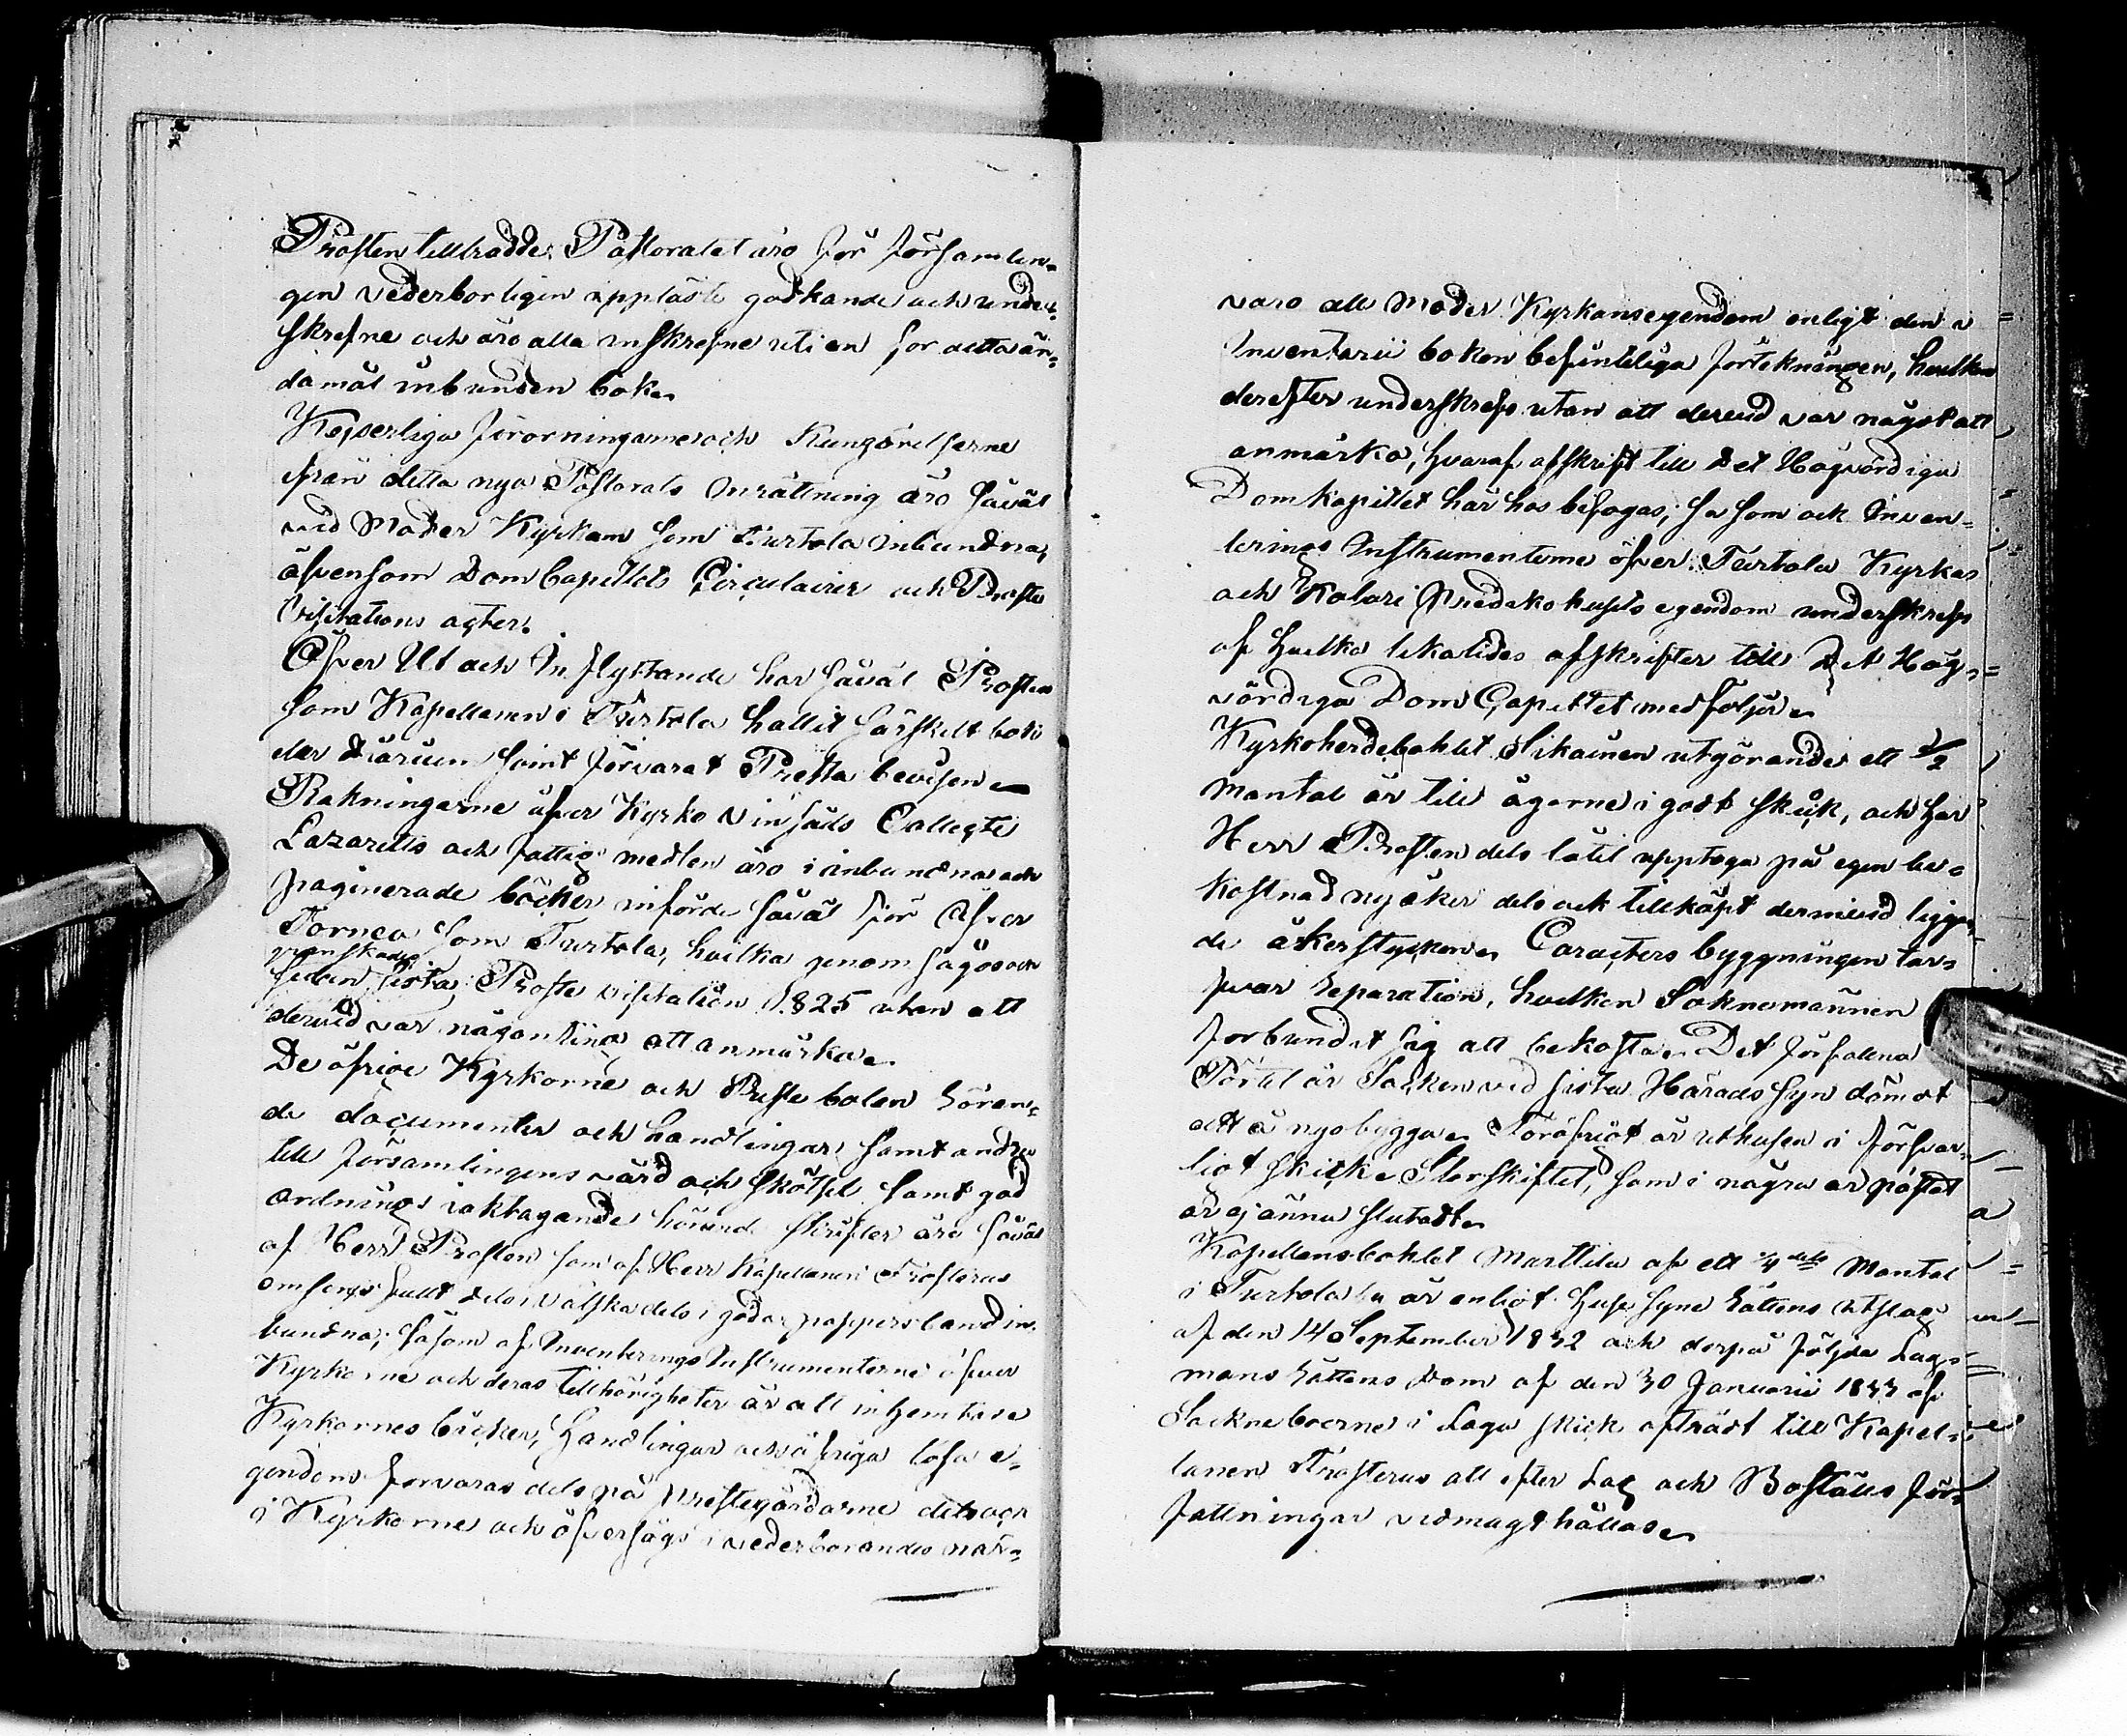 Prosten tillträdde Pastoratet äro för församlin-
gen vederborligen uppläste godkände och under-
skrefne och äro alla inskrefne uti en for detta än-
damål inbunden bok.
Kejserliga förorningarne och Kungörelserne
från detta nya Pastorats Inrättning äro såväl
vid Moder Kyrkan som Turtola inbundna,
äfvensom DomCapitlets Circulairer och Prosta
Visitations acter.
Öfver Ut och In flyttande har såväl Prosten
som Kapellanen i Turtola hallit särskilt bok
eler Diarium samt förvarat Presta bevisen
Räkningarne öfver Kyrko Vinsäds Collecte
Lazaretts och fattig medlen äro i inbundna och
paginerade böcker införde såväl för Öfver
Tornea som Turtola, hvilka genomsågos och
granskades
sedan sista Proste visitation 1825 utan att
dervid var någonting att anmärka.
De öfrige Kyrkorne och Preste bolen rören-
de documenter och handlingar samt andra
till församlingens vård och skötsel samt god
ordnings iaktagande hörande skrifter äro såväl
af Herr Prosten som af Herr Kapellanen Frosterus
omsorgsfullt dels i välska dels i goda pappersband in-
bundna; såsom af Inventerings Instrumenterne öfver
Kyrkorne och deras tillhörigheter är att inhemta
Kyrkornes böcker, Handlingar och öfriga lösa e-
gendom forvaras dels på prestegårdarne dels och
i Kyrkorne och öfversågs i vederborandes när-
varo all Moder Kyrkans egendom enligt den i
Inventarii boken befinteliga förtekningen, hvilken
derefter underskrefs utan att dervid var något att
anmärka, hvaraf afskrift till Det Högvördiga
Domkapitlet här hos bifogas; så som ock Inven-
terings Instrumenterne öfver Turtola Kyrkas
och Kolari Predikohusets egendom underskrefs
af hvilka likaledes afskrifter till Det Hög-
vördiga DomCapitlet medföljer.
Kyrkoherdebohlet Sikainen utgörande ett 1/2
Mantal är till ägorne i godt skick, och har
Herr Prosten dels låtit upptaga på egen be-
kostnad ny åker dels ock tillköpt dermied liggan-
de åkerstycken. Caracters byggningen tar-
fvar reparation, hvilken Soknemännen
forbundit sig att bekosta. Det förfallna
Pörtet är Socken vid sista Härads syn dömt
att å nyo bygga. För öfrigt är uthusen i försvar-
ligt skick. Storskiftet, som i några år påstått
är ej ännu slutadt.
Kapellansbohlet Marttila af ett 1/4 dels Mantal
i Turtola by är enligt Husesyns Rättens utslag
af den 14 September 1832 och derpå följda Lag-
mans Rättens Dom af den 30 Januarii 1833 af
Sockneboerne i Laga skick afträdt till Kapel-
lanen Frosterus att efter Lag och Boställs för-
fattningar vidmagthållas.